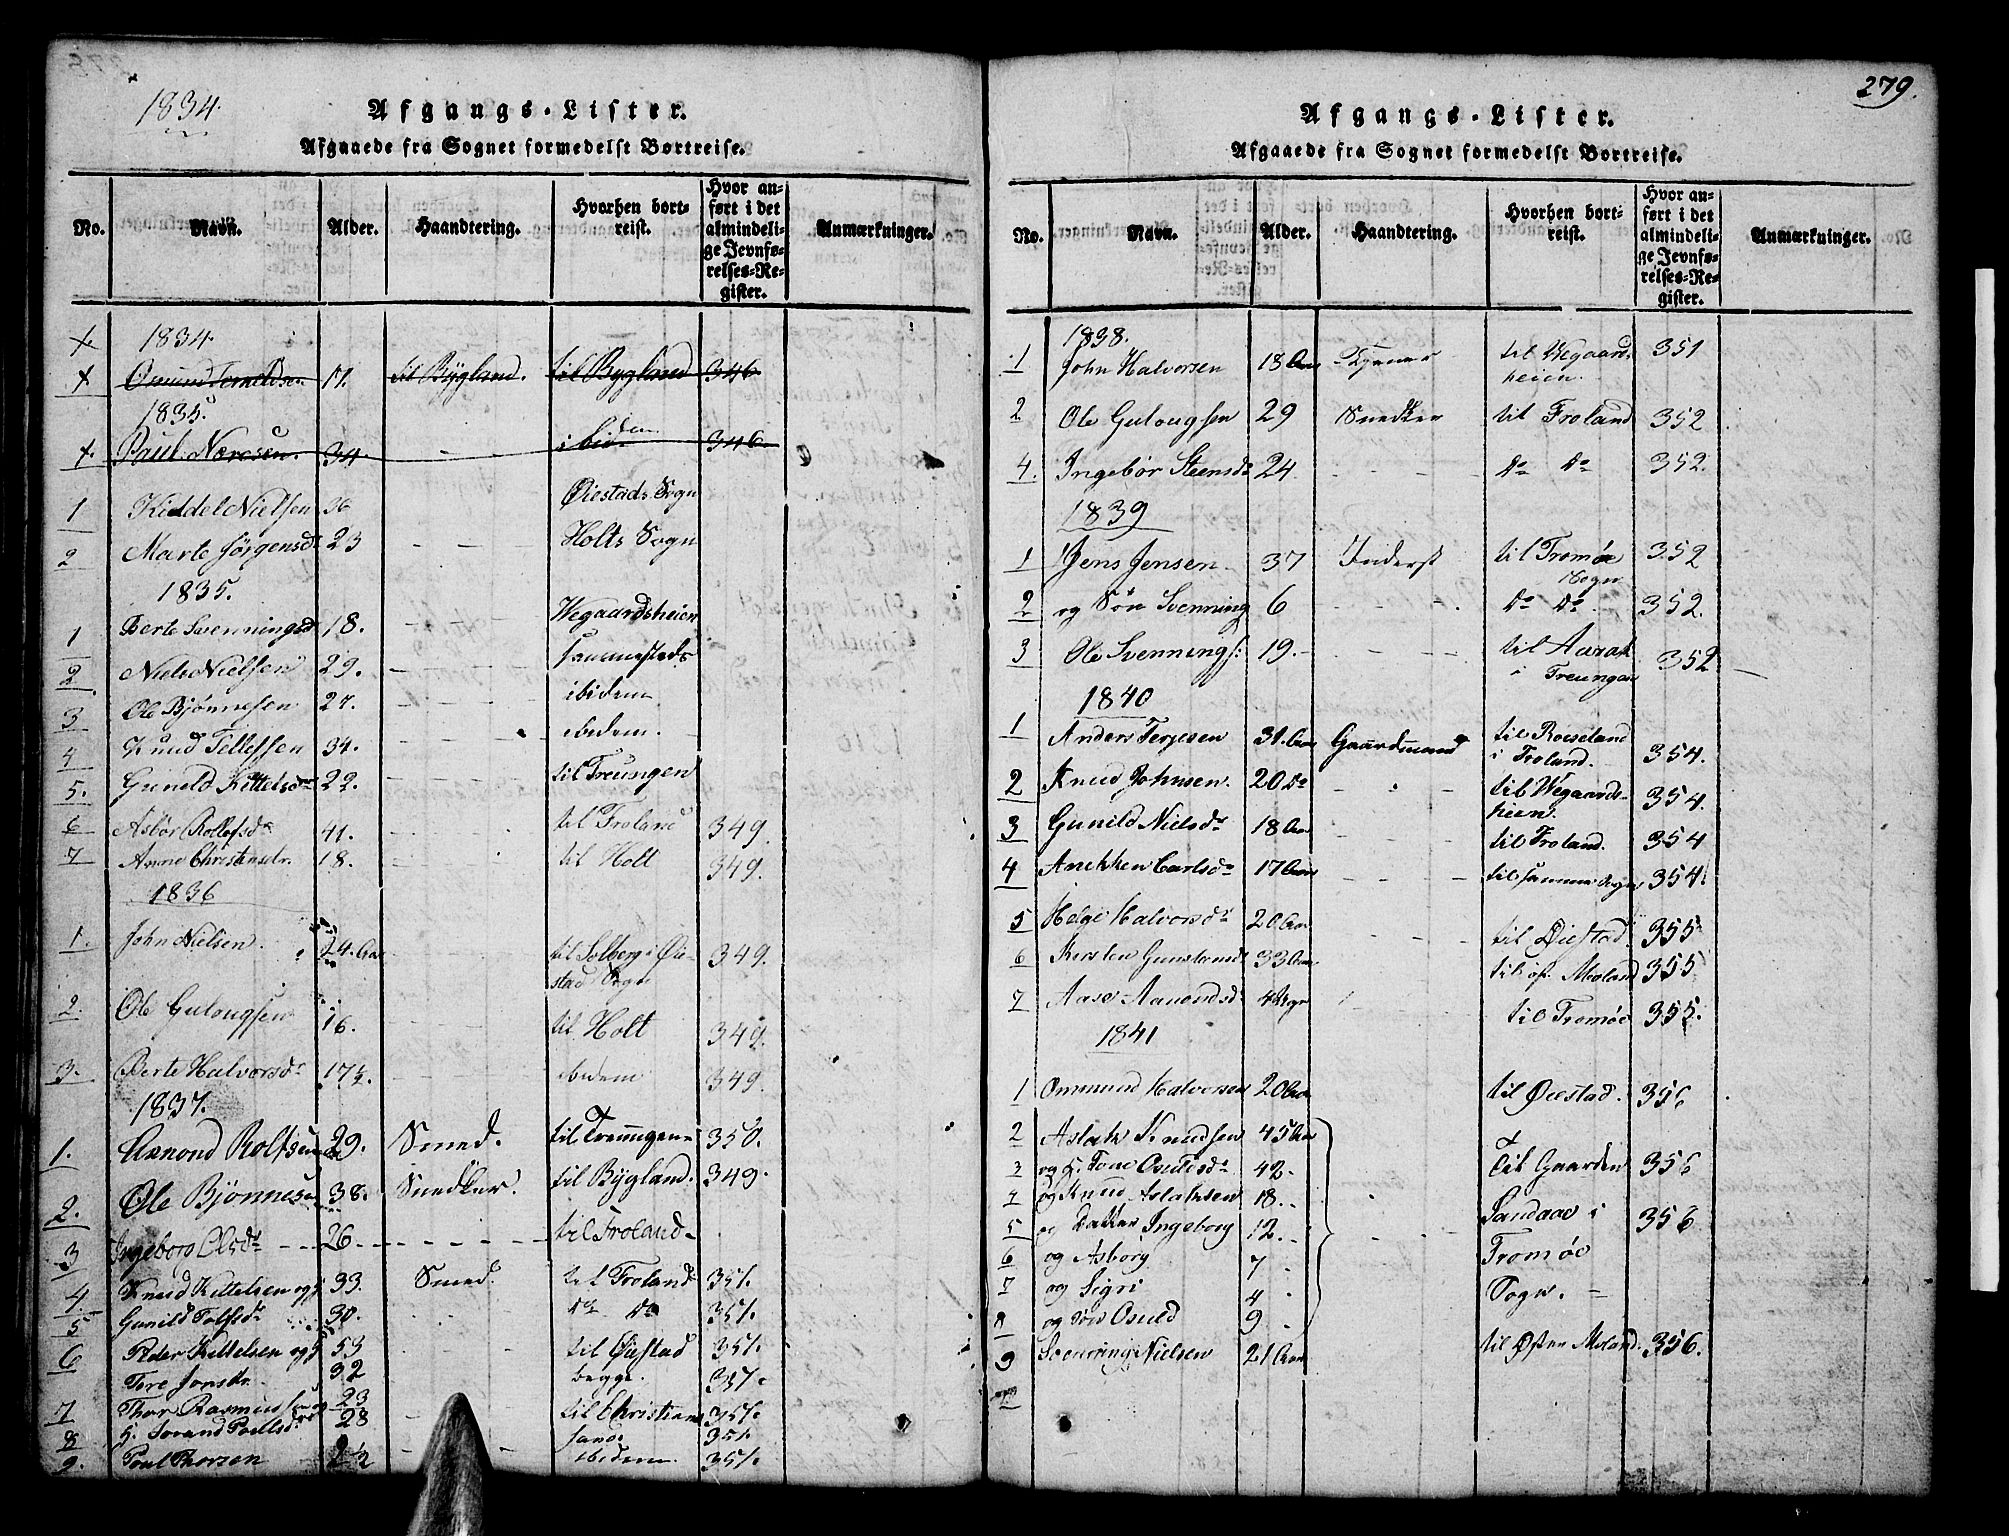 1834.
Afgangs-Lister.
Afgaaede fra Sognet formedelst Bortreise.
No. Navn. Alder. Haandtering. Hvorhen bortreist. Hvor anført i det almindelige Jevnførelses-Register. Anmærkninger.
1834.
+ Omund 17. til Bygland. til Bygland 346
1835.
+ Paul 34 ibidem 346
1 Kiddel Nielsen 36 Øiestads Sogn
2 Marte Jörgensd. 23 Holts Sogn
1835.
1 Berte Svenningsd 18. Wegaardsheien
2 Niels Nielsen 29. sammesteds
3 Ole Bjönnesen 27. ibidem
4 Knud Tellefsen 34. ibidem.
5. Gunild Kittelsdr 22. til Treungen
6 Asbör Rollefsdr 41. til Froland 349.
7 Anne Christensdr. 18. til Holt 349.
1836
1. John Nielsen. 24. Aar til Solberg i Øiestad Sogn 349.
2. Ole Gulougsen 16. til Holt 349.
3. Berte Halvorsdr 17½. ibidem 349.
1837.
1. Aanond Rolfsen 29. Smed. til Treungen 350.
2. Ole Bjönnesen 38. Snedker. til Bygland. 349.
3 Ingeborg Olsdr 26. til Froland
4. Knud Kittelsen og 33. Smed. til Froland 351.
5 Gunild Tolfsdr 30. do do 351.
6 Peder Kittelsen og 53 til Øiestad 351.
Tore Jonsdr. 32 begge. 351.
7 Thor Rasmussen og 23 til Christian 351.
8 28 sand. 351
9. Poul Thorsen 2½ ibidem 351.
279.
Afgangs-Lister.
Afgaaede fra Sognet formedelst Bortreise.
No. Navn. Alder. Haandtering. Hvorhen bortreist. Hvor anført i det almindelige Jevnførelses-Register. Anmærkninger.
1838.
1 John Halvorsen 18 Aar Tjener til Wegaardsheien 351
2 Ole Gulougsen 29 Snedker til Froland 352
4. Ingebör Steensdr 24 do do 352.
1839
1 Jens Jensen 37 Inderst til Tromöe Sogn 352
2 og Sön Svenning 6 do do 352.
3 Ole Svennings: 19. til Aarak i Treungen 352
1840
1 Anders Terjesen 31. Aar Gaardmand til Roiseland i Froland. 354.
2 Knud Johnsen. 20 do til Wegaardsheien. 354.
3 Gunild Nielsdr 18 Aar til Froland. 354
4 Anekken Carlsdr 17 Aar til samme Sogn 354.
5 Helge Halvorsdr 20 Aar til Øiestad 355
6 Kirsten Gunstensd 33 Aar til øs. Moland 355
7 Aase Aanondsd. til Tromöe 355.
1841
1 Ommund Halvorsen 20 Aar til Øiestad. 356
2 Aslak Knudsen 45 Aar Til Gaarden 356
3 og K. Tone Osuldsdr 42.
4 og Knud Aslaksen 18. Sandaae i
5 og Datter Ingeborg 12. 356
6 og Asborg 7 Tromöe
7 og Sigri 4 Sogn.
8 og sön Osuld 9
9 Svenning Nielsen 21 Aar til Øster Moland. 356.